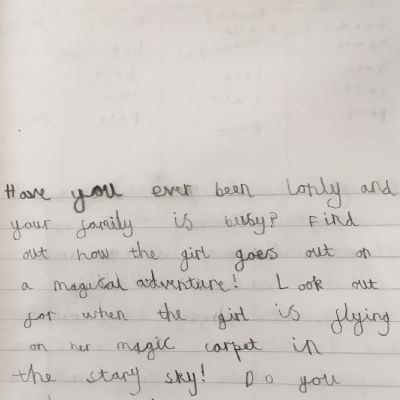 Have you ever been lonly and
your family is busy? Find
out how the girl goes out on
a magical adventure! Look out
for when the girl is flying
on her magic carpet in
the stary sky! Do you